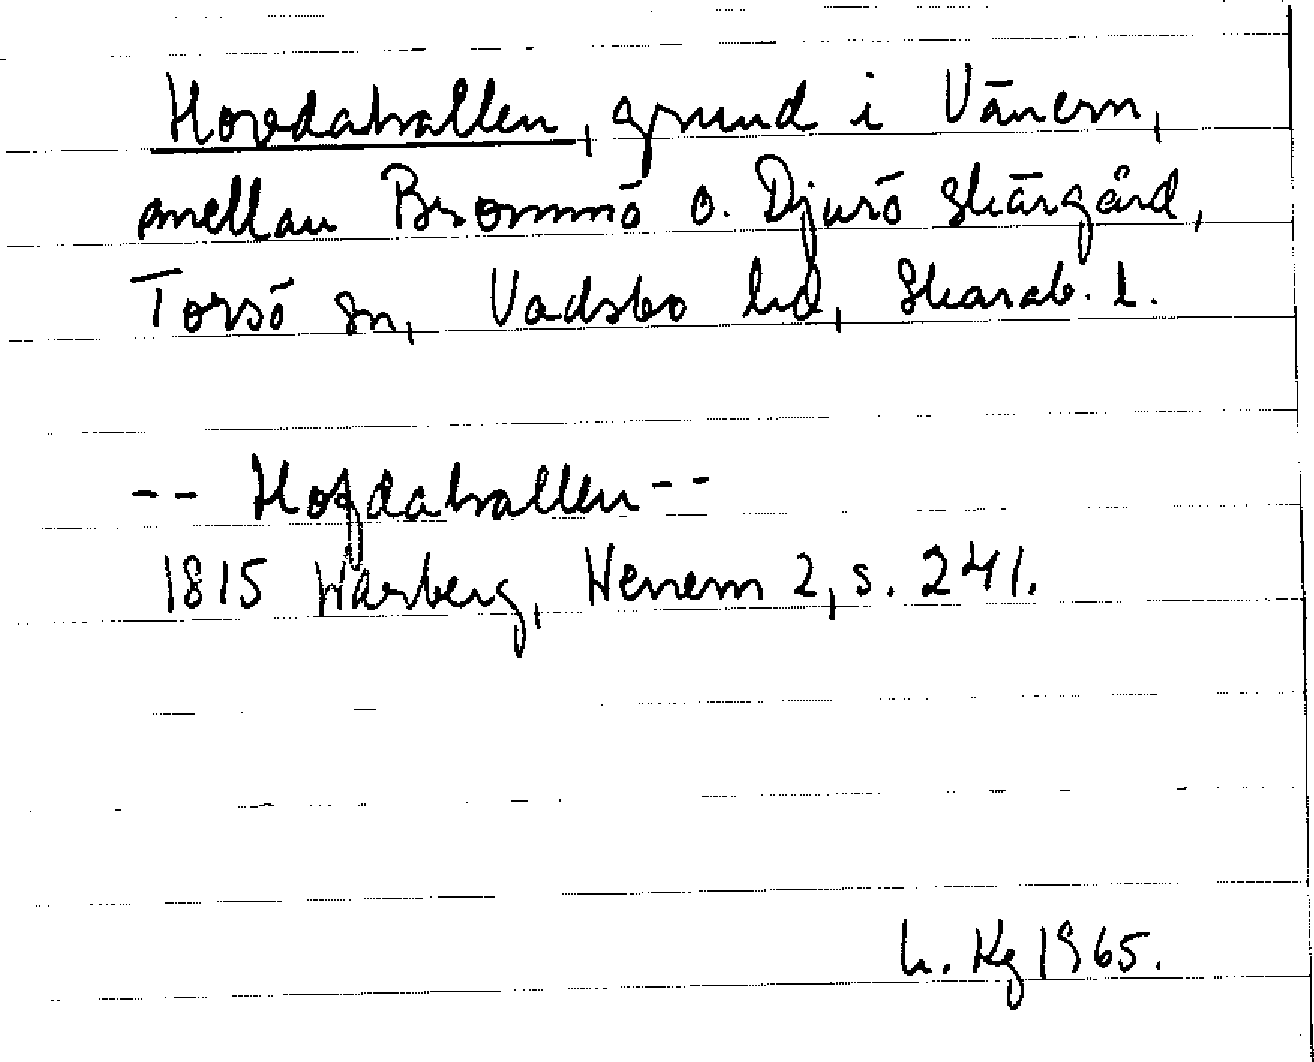 Hovdahallen, grund i Vänern,
mellan Brommö o. Djurö skärgård,
Torsö sn, Vadsbo hd, Skarab. l.
-- Hofdahallen --
1815 Warberg, Wenern 2, s. 241.
L. Kg 1965.